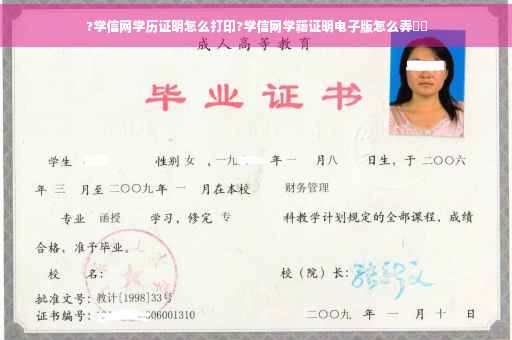 ?学信网学历证明怎么打印?学信网学籍证明电子版怎么弄
成人高等教育
毕业证书
学生 性别 女 ,一九 年一 月八 日生,于二〇〇六
年 三 月至二〇〇九年 一 月在本校 财务管理
专业 函授 学习,修完 专 科教学计划规定的全部课程,成绩
合格,准予毕业。
校 名: 校(院)长:
批准文号:教计[1998]33号
证书编号: 06001310 二〇〇九 年 一 月 十 日